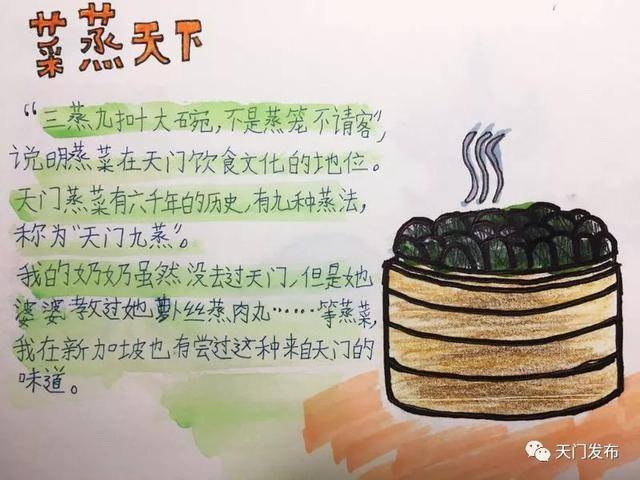 菜蒸天下
“三蒸九扣十大碗，不是蒸笼不请客”，
说明蒸菜在天门饮食文化的地位。
天门蒸菜有六千年的历史，有九种蒸法，
称为“天门九蒸”。
我的奶奶虽然没去过天门，但是她
婆婆教过她萝卜丝蒸肉丸……等蒸菜，
我在新加坡也有尝过这种来自天门的
味道。
天门发布